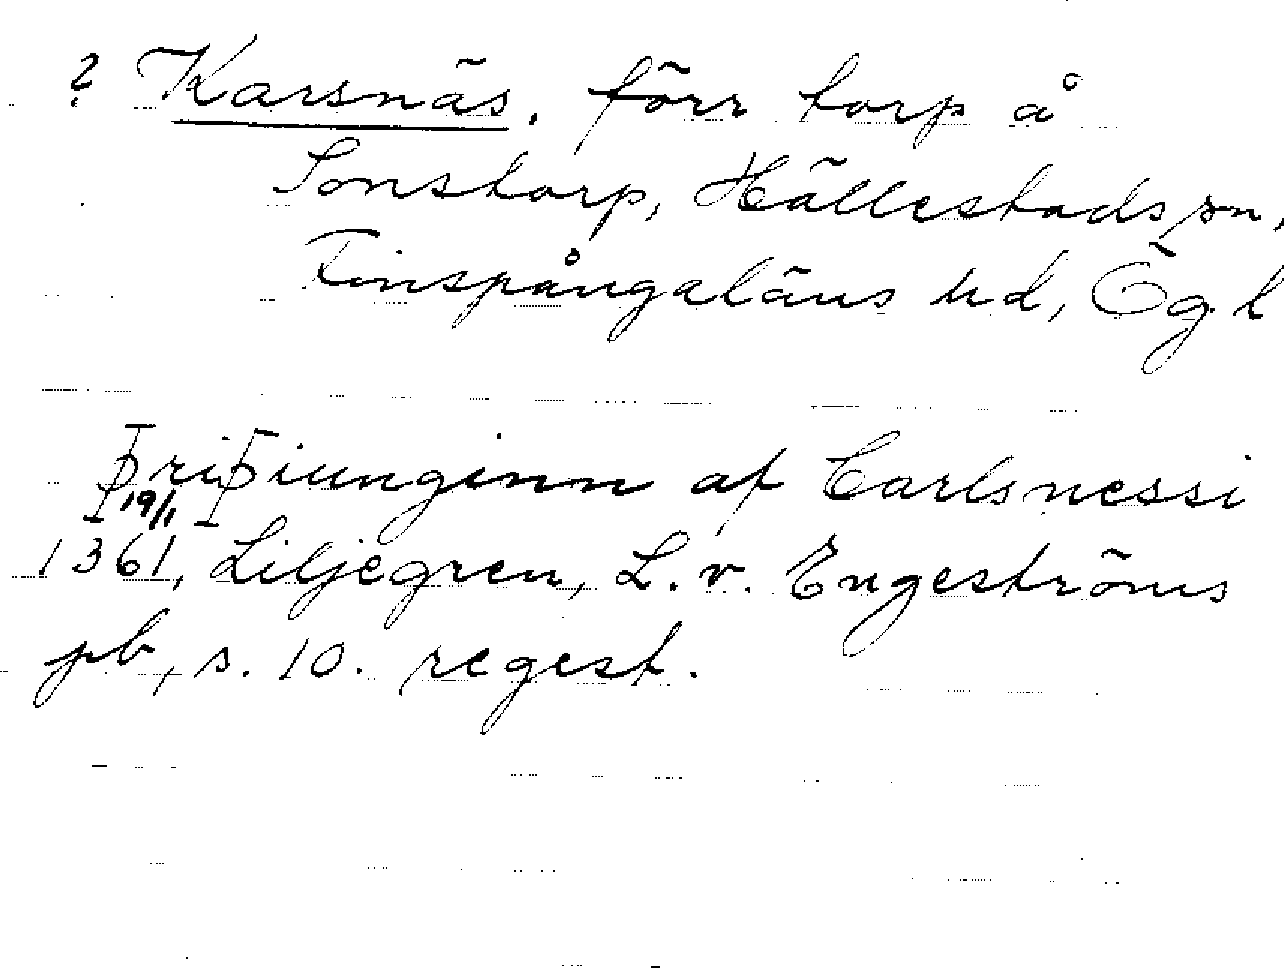 ? Karsnäs, förr torp å
Sonstorp, Hällestads sn,
Finspångaläns hd, Ög. l
Þriþiunginn af Carlsnessi
19/1
1361, Liljegren, L. v. Engeströms
pb, s. 10. regest.